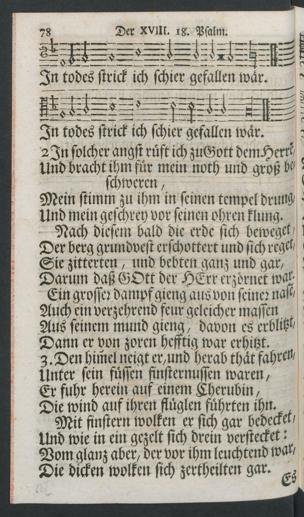 78 Der XVIII. 18. Psalm.
In todes strick ich schier gefallen wär.
In todes strick ich schier gefallen wär.
2 In solcher angst rüft ich zu Gott dem Herrn
Und bracht ihm für mein noth und groß be-
schweren,
Mein stimm zu ihm in seinen tempel drung,
Und mein geschrey vor seinen ohren klung.
Nach diesem bald die erde sich beweget,
Der berg grundvest erschottert und sich reget,
Sie zitterten, und bebten ganz und gar,
Darum daß GOtt der HErr erzörnet war.
Ein grosser dampf gieng aus von seiner nase,
Auch ein verzehrend feur geleicher massen
Aus seinem mund gieng, davon es erblitzt,
Dann er von zoren hefftig war erhitzt.
3. Den him̄el neigt er, und herab thät fahren,
Unter sein füssen finsternussen waren,
Er fuhr herein auf einem Cherubin,
Die wind auf ihren flüglen führten ihn.
Mit finstern wolken er sich gar bedecket,
Und wie in ein gezelt sich drein verstecket:
Vom glanz aber, der vor ihm leuchtend war,
Die dicken wolken sich zertheilten gar.